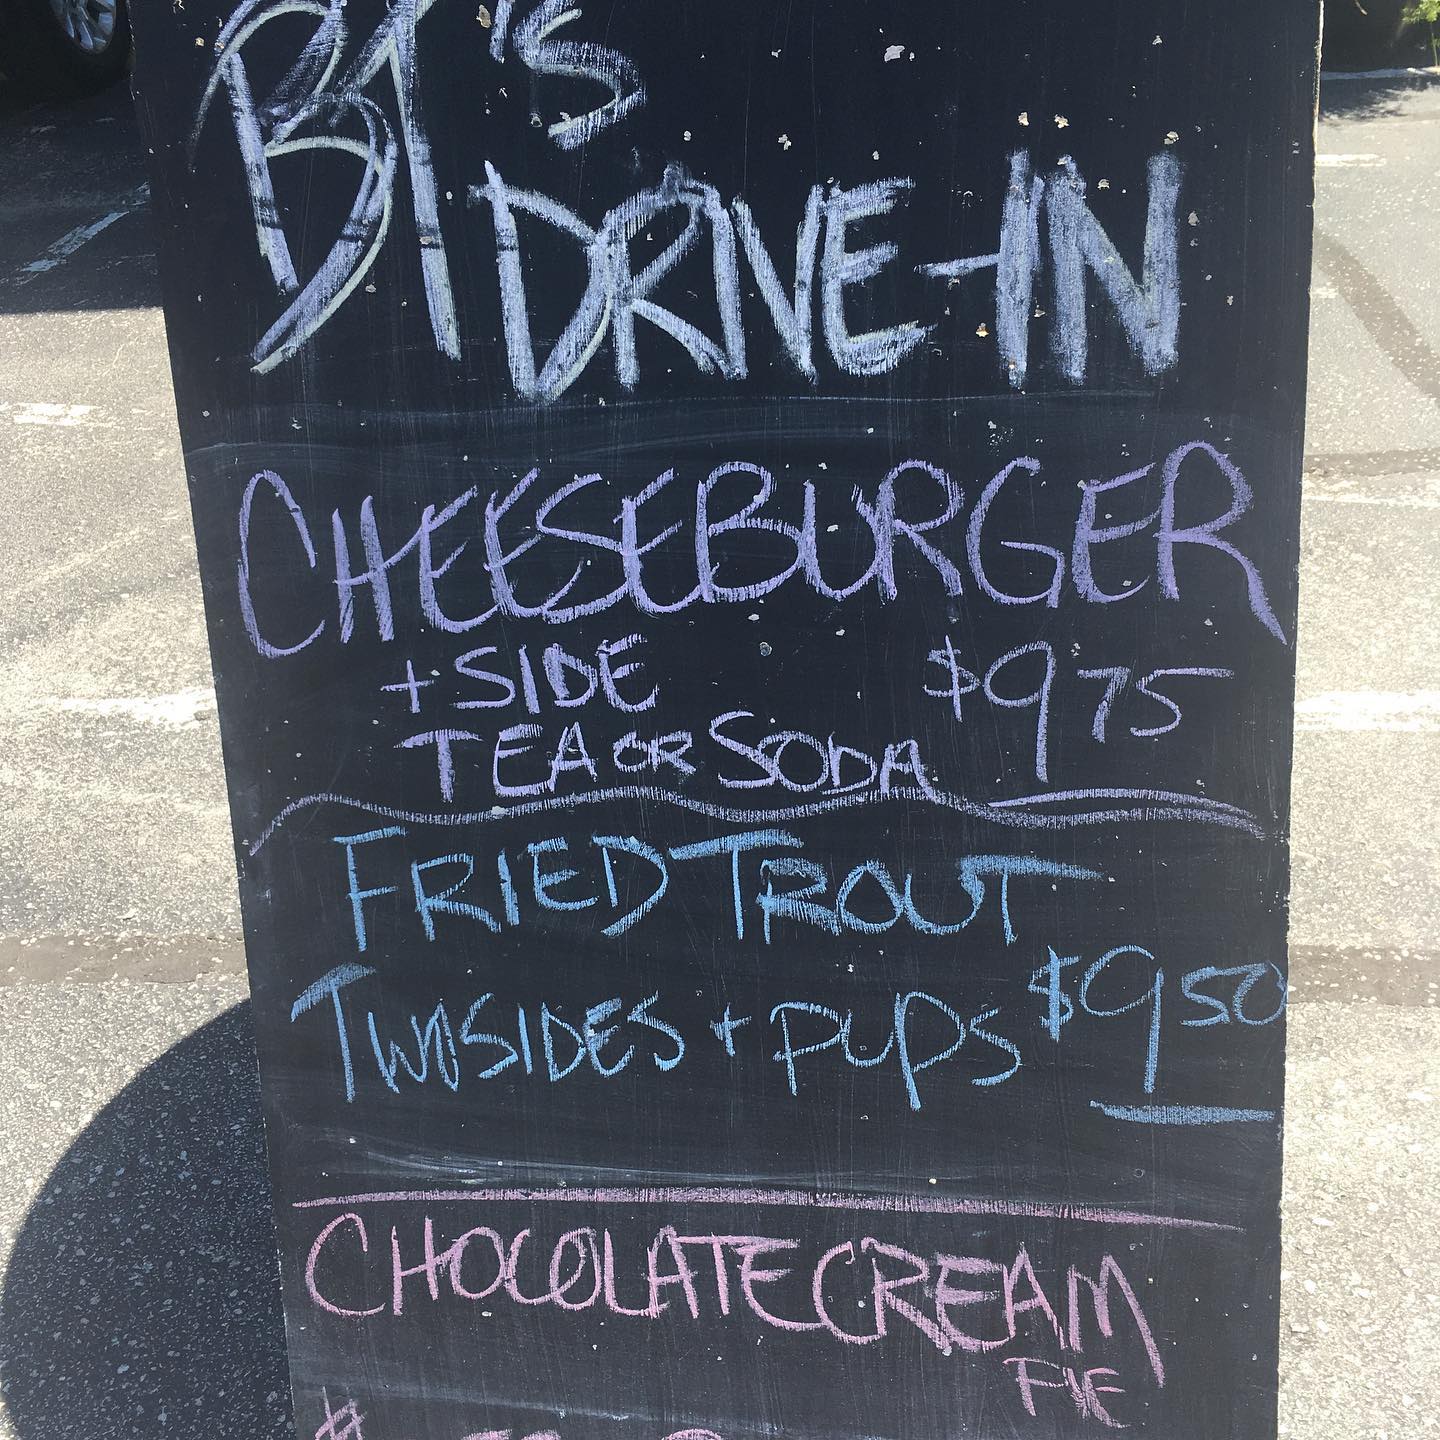 BT's
DRIVE-IN
CHEESEBURGER
+ SIDE $975
TEA OR SODA
FRIED TROUT
TWO SIDES + PUPS $950
CHOCOLATE CREAM
PIE